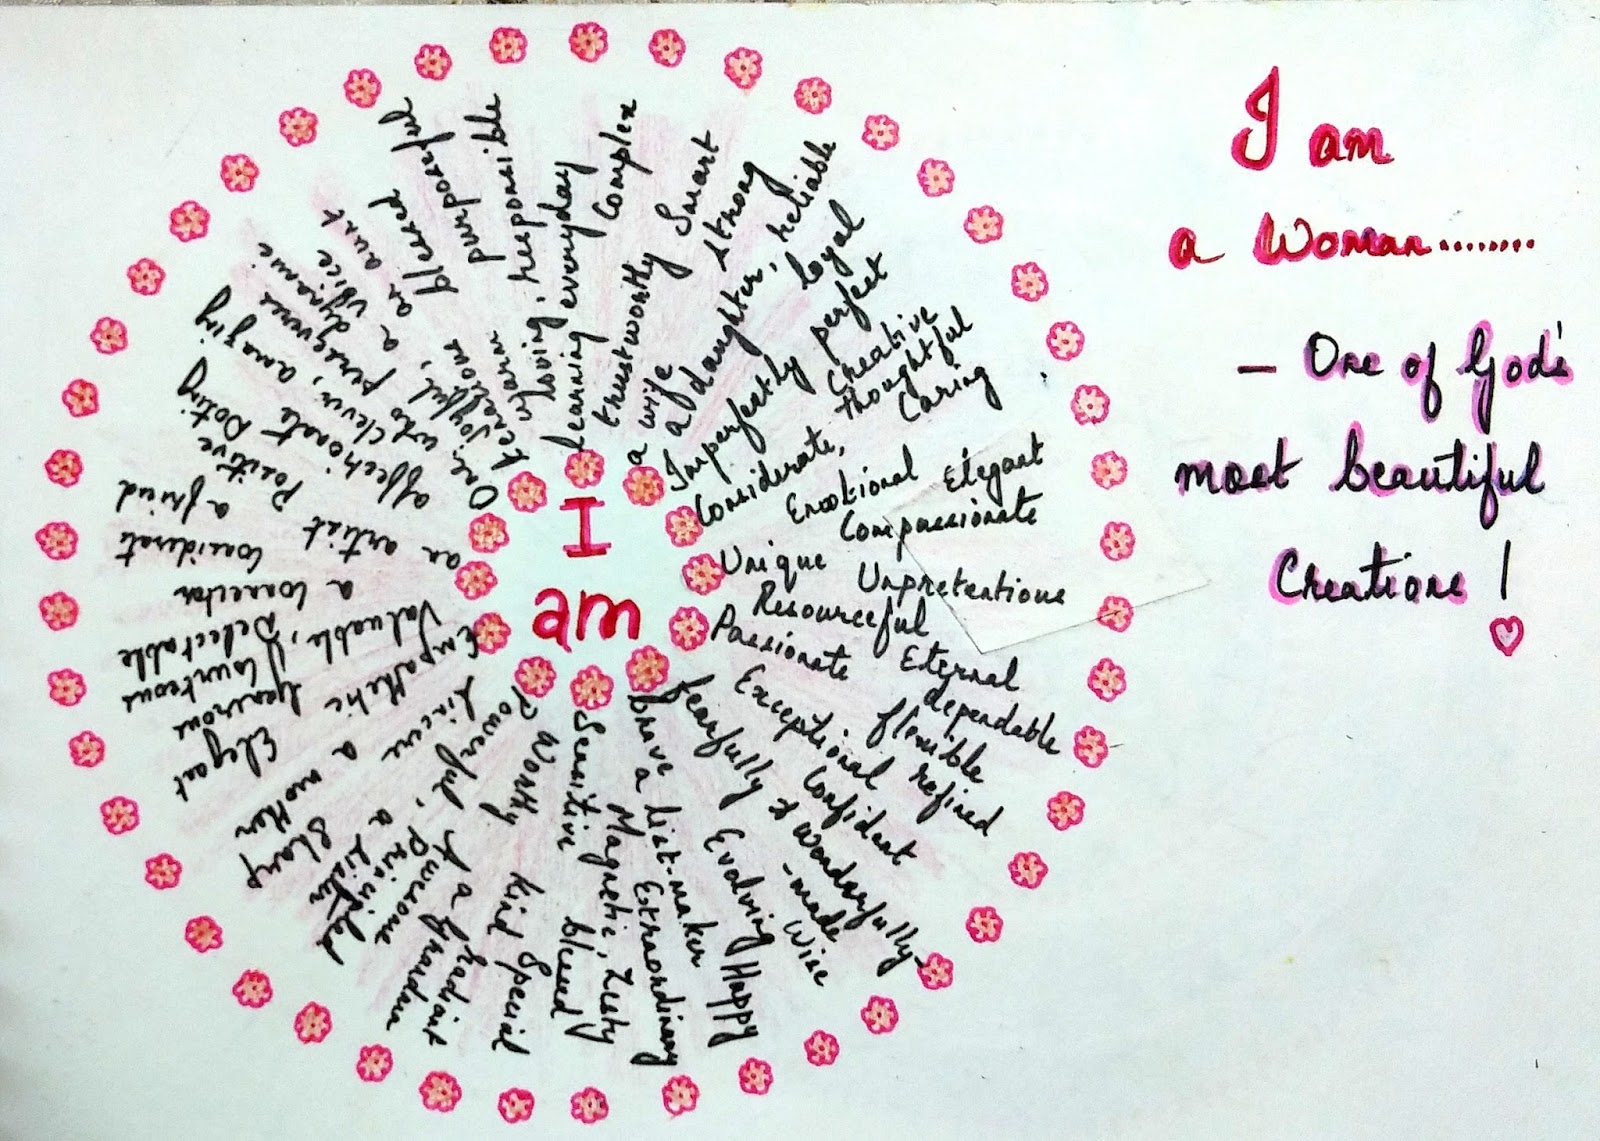 I am
a Woman........
— One of God's
most beautiful
Creations !
I
am
Complex
trustworthy Smart
a wife strong
a daughter, reliable
loyal
Imperfectly perfect
Creative
Considerate, thoughtful
Caring
Emotional Elegant
Compassionate
Unique Unpretentious
Resourceful Eternal
Passionate dependable
Exceptional flexible
refined
Confident
fearfully & wonderfully
-made
Wise
Evolving Happy
brave
a list-maker
Extraordinary
Magnetic, Zesty
Sensitive blessed
Worthy kind Special
Powerful, Awesome
radiant
a Grandma
Principled
a sister
Sincere a mother Sharp
Empathetic Generous Elegant
Courteous
Valuable, Delectable
a Corrector
Considerate
an artist
a friend
Positive
affectionate Doting
One who perseveres
clever, amazing
joyful, a voice
dynamic
generous an aunt
warm blessed
purposeful
loving, responsible
learning everyday